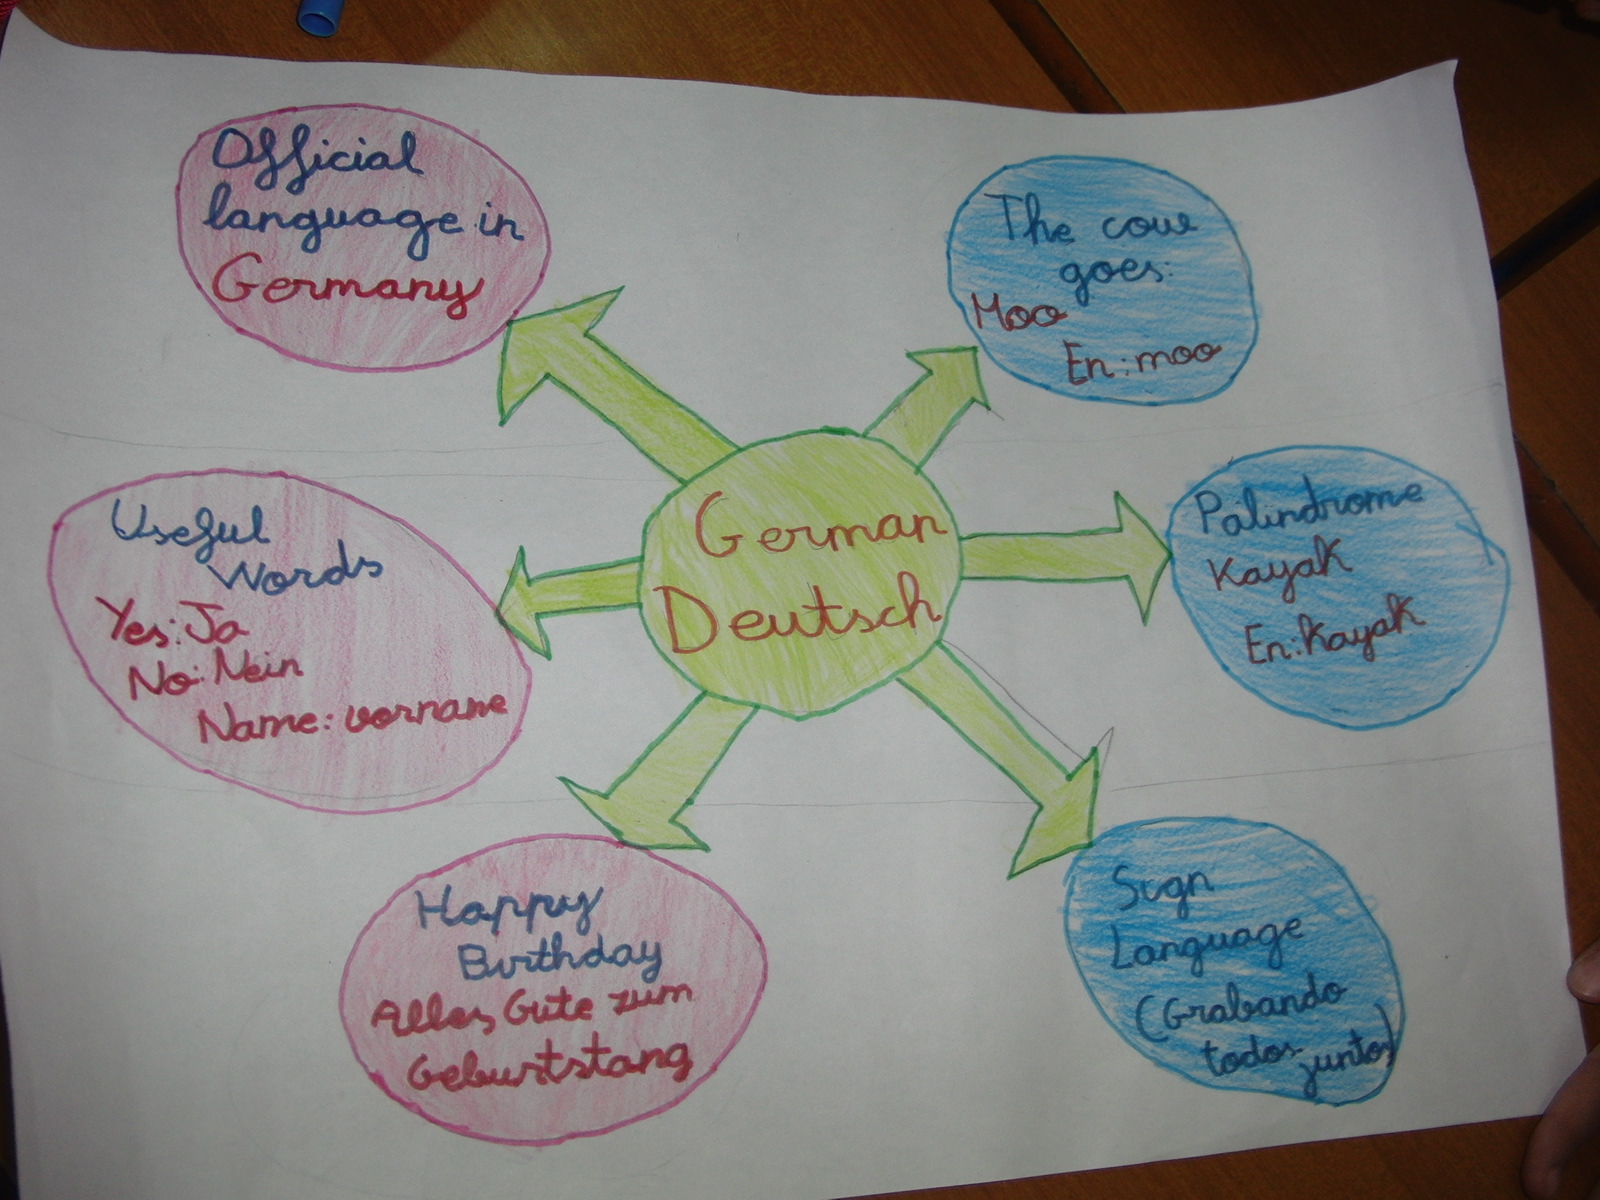 Official
language in
Germany
The cow
goes:
Moo
En: moo
German
Deutsch
Useful
Words
Yes: Ja
No: Nein
Name: vorname
Palindrome
Kayak
En: Kayak
Happy
Birthday
Alles Gute zum
Geburtstang
Sign
Language
(Grabando
todos juntos)